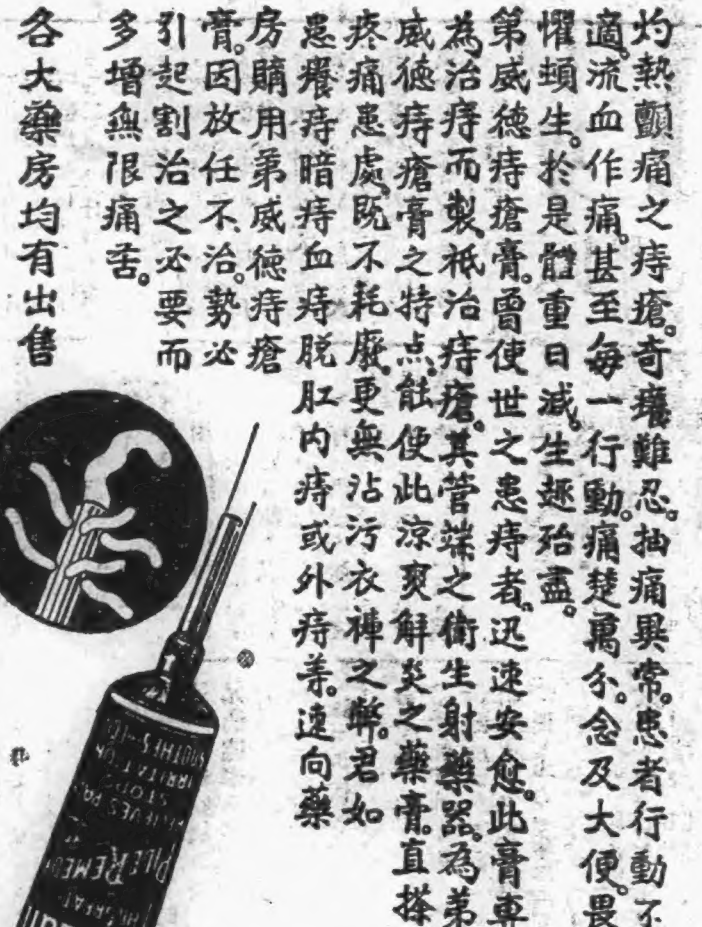 灼熱顫痛之痔瘡。奇癢難忍。抽痛異常。患者行動不
適。流血作痛。甚至每一行動。痛楚萬分。念及大便。畏
懼頓生。於是體重日減。生趣殆盡。
第威德痔瘡膏。曾使世之患痔者。迅速安愈。此膏專
為治痔而製。祗治痔瘡。其管端之衛生射藥器。為第
威德痔瘡膏之特点。能使此涼爽解炎之藥膏。直搽
疼痛患處。既不耗廢。更無沾污衣褲之弊。君如
患癢痔暗痔血痔脱肛内痔或外痔等。速向藥
房購用第威德痔瘡
膏。因放任不治。勢必
引起割治之必要而
多增無限痛苦。
各大藥房均有出售
SOOTHES
IRRITATION
STOPS
RELIEVES PA
PILE REMEDY
GREAT